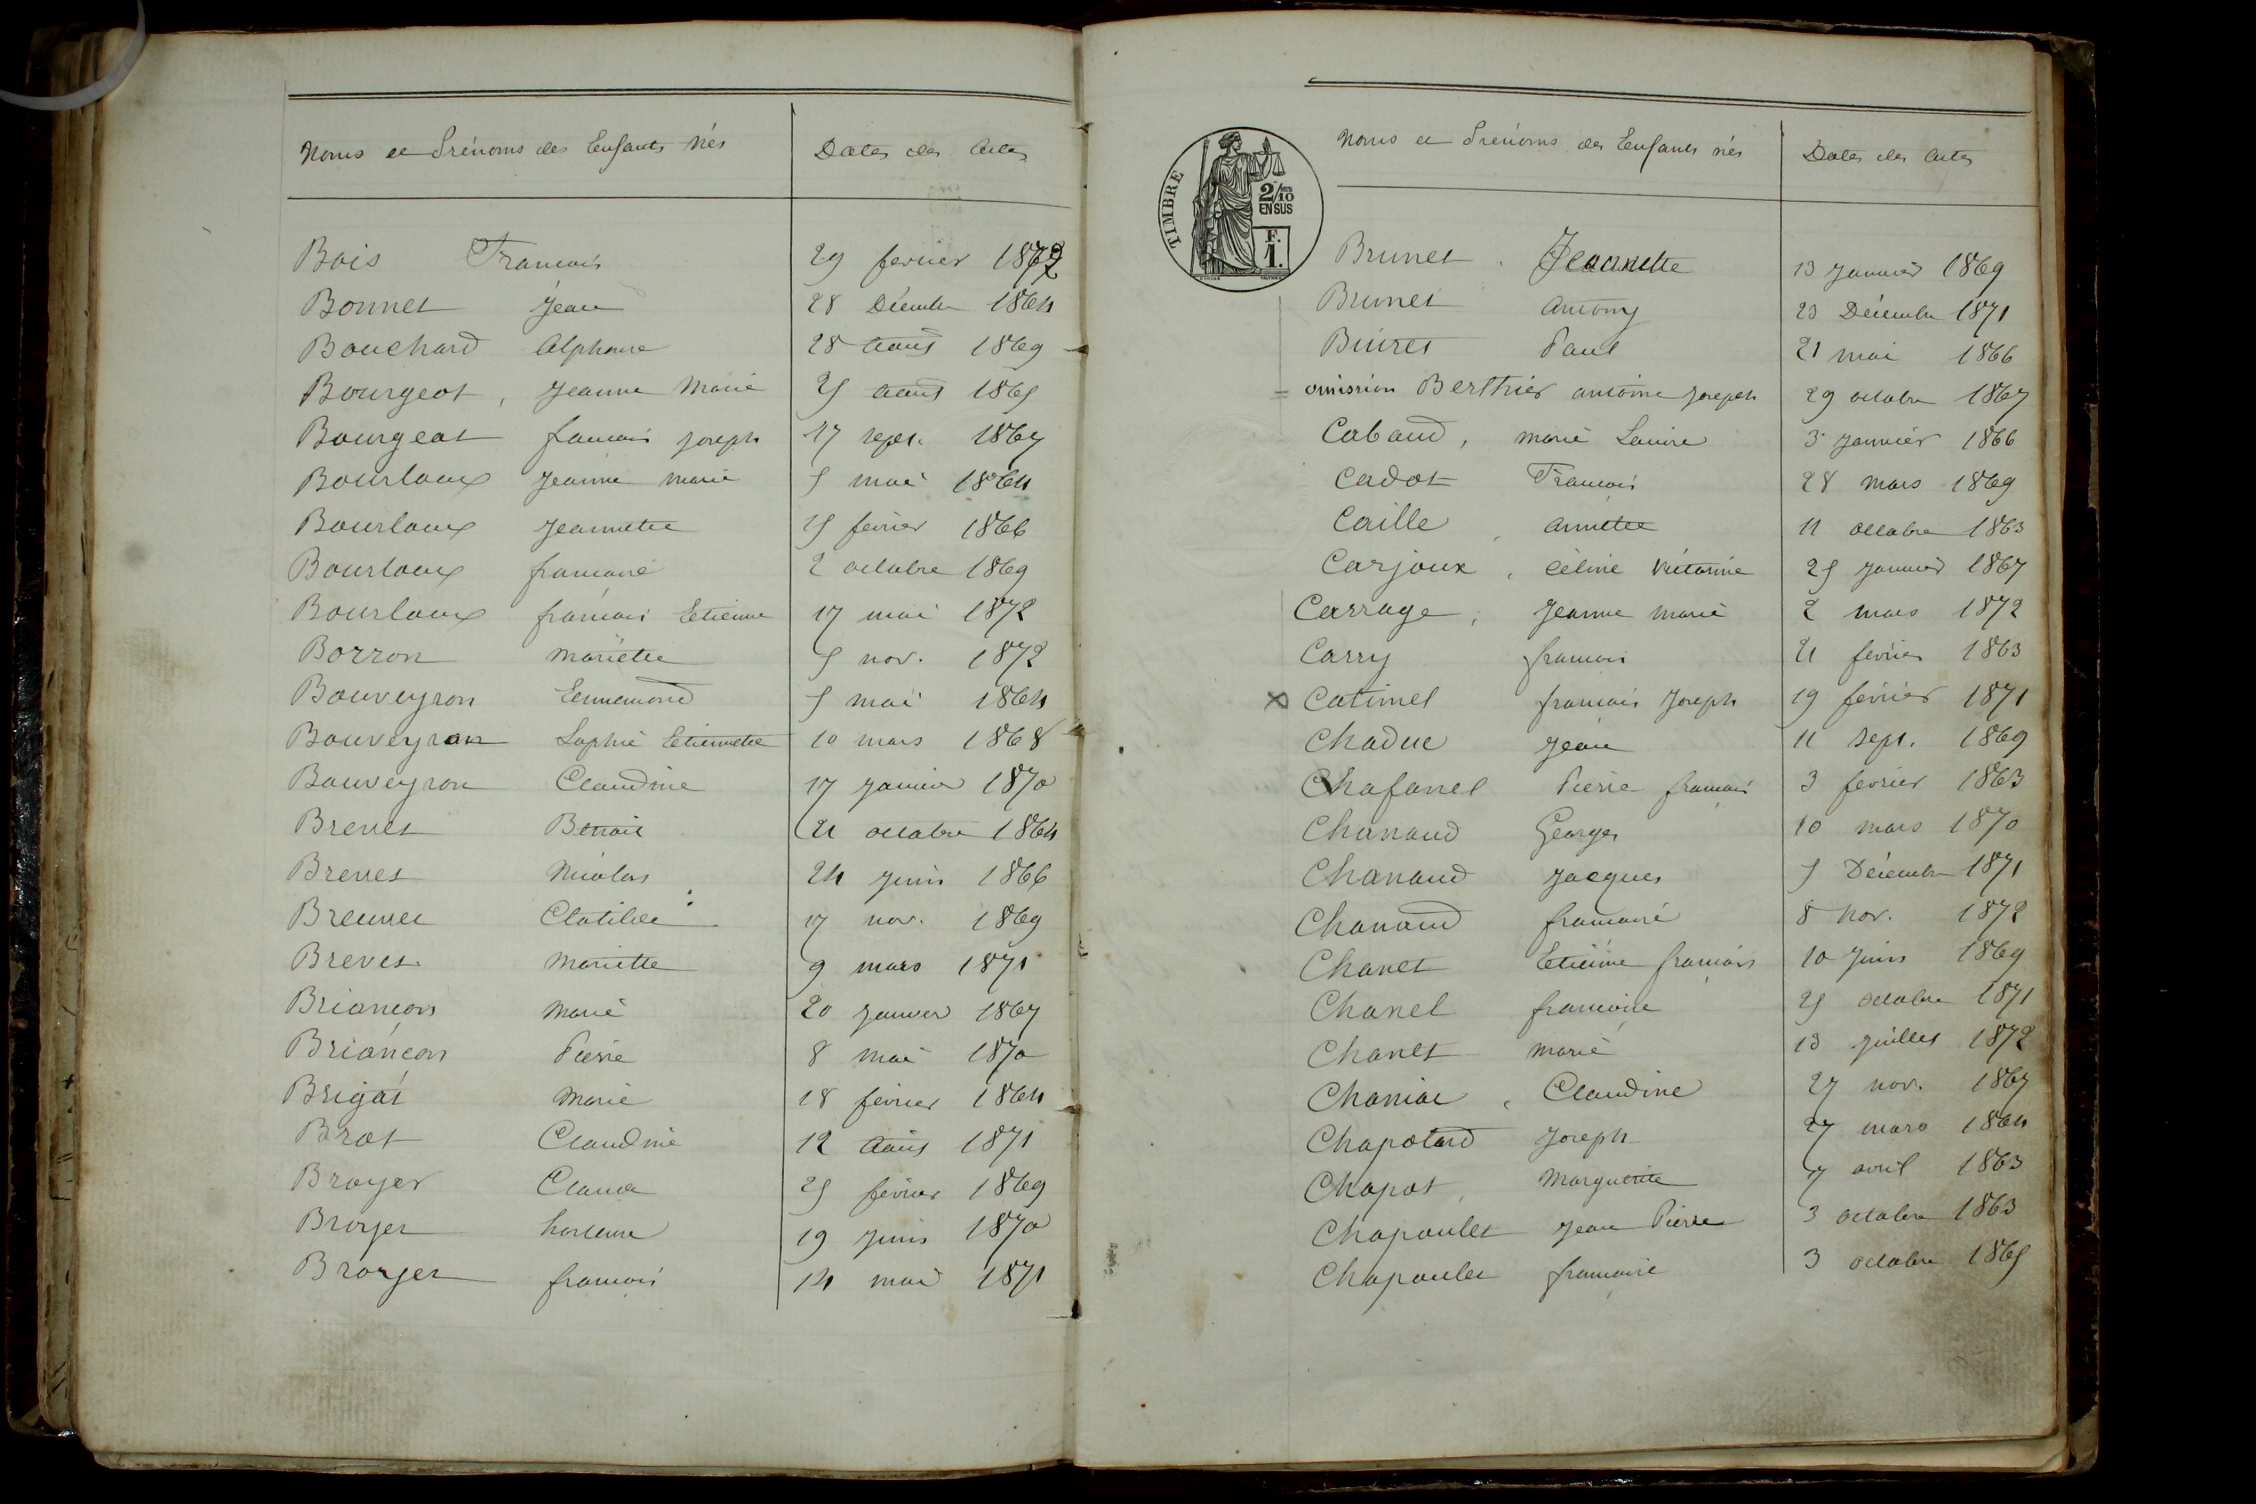 Noms et Prénoms des Enfants nés
Dates des Actes
Bois François 29 fevrier 1872
Bonnet Jean 28 Décembre 1864
Bouchard Alphonse 28 aout 1869
Bourgeot, Jeanne Marie 25 aout 1865
Bourgeat francois joseph 17 sept. 1867
Bourloux Jeanne marie 5 mai 1864
Bourloux Jeannette 25 février 1866
Bourloux francoise 2 octobre 1869
Bourloux francois Etienne 17 mai 1872
Borron mariette 5 nov. 1872
Bouveyron Ennemond 5 mai 1864
Bouveyron Sophie Etiennette 10 mars 1868
Bouveyron Claudine 17 janvier 1870
Brevet Benoit 21 octobre 1864
Brevet Nicolas 24 juin 1866
Brevet Clotilde 17 nov. 1869
Brevet Mariette 9 mars 1871
Briancon Marie 20 janvier 1867
Briançon Pierre 8 mai 1870
Brigat Marie 18 février 1864
Brot Claudine 12 aout 1871
Broyer Claude 25 février 1869
Broyer hortense 19 juin 1870
Broyer francois 14 mai 1871
TIMBRE
2/10
EN SUS
F.
1.
Noms et Prénoms des Enfants nés
Dates des Actes
Brunet . Jeannette 13 janvier 1869
Brunet antony 23 Décembre 1871
Buiret Paul 21 mai 1866
= omission Berthier antoine joseph 29 octobre 1867
Cabaud, marie Louise 3 janvier 1866
Cadot François 28 mars 1869
Caille, annette 11 octobre 1863
Carjoux, céline victorine 25 janvier 1867
Carrage, Jeanne marie 2 mars 1872
Carry francois 21 février 1863
x Catimel francois joseph 19 février 1871
Chaduc Jean 11 sept. 1869
Chafanel Pierre francois 3 fevrier 1863
Chanaud Georges 10 mars 1870
Chanaud Jacques 5 Décembre 1871
Chanaud francoise 8 nov. 1872
Chanet Etienne francois 10 juin 1869
Chanel francoise 25 octobre 1871
Chanet Marie 13 juillet 1872
Chaniac, Claudine 27 nov. 1867
Chapotard Joseph 27 mars 1864
Chapot, Marguerite 17 avril 1863
Chapoulet Jean Pierre 3 octobre 1863
Chapoulet francoise 3 octobre 1865